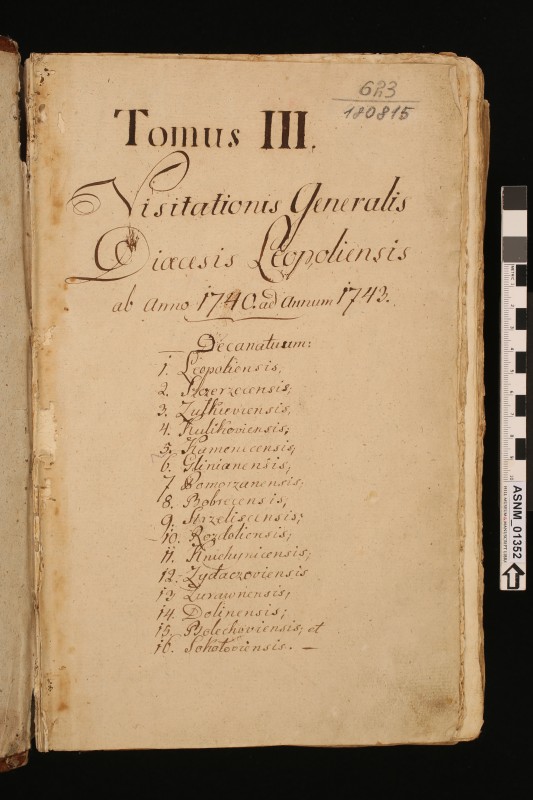 623
180815
Tomus III.
Visitationis Generalis
Diæcesis Leopoliensis
ab Anno 1740. ad Annum 1743.
Decanatuum:
1. Leopoliensis;
2. Szczerzecensis;
3. Zulkieviensis,
4. Kulikoviensis;
5. Kamonecensis;
6. Glinianensis;
7. Pomorzanensis;
8. Bobrecensis;
9. Strzeliscensis;
10. Rozdoliensis;
11. Knichynicensis;
12. Zydaczoviensis
13. Zurawnensis;
14. Dolinensis;
15. Bolechoviensis; et
16. Sokoloviensis. —
ASNM_01352